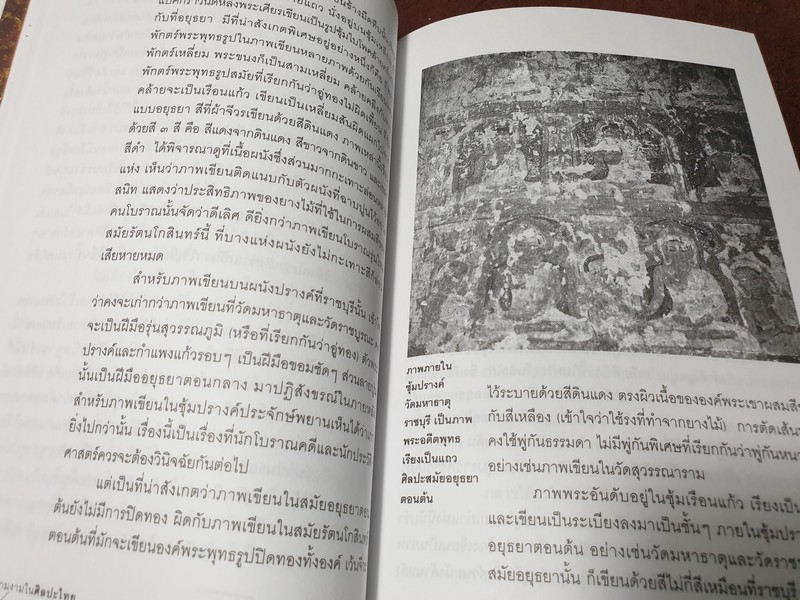 พักตร์พระพุทธรูปในภาพเขียนหลายภาพด้วยกัน
พักตร์เหลี่ยม พระขนงก็เป็นสามเหลี่ยม
พักตร์พระพุทธรูปสมัยที่เรียกกันว่าอู่ทองไม่ผิด
คล้ายจะเป็นเรือนแก้ว เขียนเป็นเหลี่ยมสันผิดแผก
แบบอยุธยา สีที่ผ้าจีวรเขียนด้วยสีดินแดง
ด้วยสี ๓ สี คือ สีแดงจากดินแดง สีขาวจากดินขาว
สีดำ ได้พิจารณาดูที่เนื้อผนังซึ่งส่วนมากกะเทาะ
แห่ง เห็นว่าภาพเขียนติดแนบกับตัวผนังที่ฉาบปูน
สนิท แสดงว่าประสิทธิภาพของยางไม้ที่ใช้ในการผสม
คนโบราณนั้นจัดว่าดีเลิศ ดียิ่งกว่าภาพเขียนโบราณรุ่น
สมัยรัตนโกสินทร์นี้ ที่บางแห่งผนังยังไม่กะเทาะสี
เสียหายหมด
สำหรับภาพเขียนบนผนังปรางค์ที่ราชบุรีนั้น
ว่าคงจะเก่ากว่าภาพเขียนที่วัดมหาธาตุและวัดราชบูรณะ
จะเป็นฝีมือรุ่นสุวรรณภูมิ (หรือที่เรียกกันว่าอู่ทอง)
ปรางค์และกำแพงแก้วรอบๆ เป็นฝีมือขอมชัดๆ
นั้นเป็นฝีมืออยุธยาตอนกลาง มาปฏิสังขรณ์ในภาย
สำหรับภาพเขียนในซุ้มปรางค์ประจักษ์พยานเห็นได้ว่า
ยิ่งไปกว่านั้น เรื่องนี้เป็นเรื่องที่นักโบราณคดีและนัก
ศาสตร์ควรจะต้องวินิจฉัยกันต่อไป
แต่เป็นที่น่าสังเกตว่าภาพเขียนในสมัยอยุธยาตอน
ต้นยังไม่มีการปิดทอง ผิดกับภาพเขียนในสมัยรัตนโกสินทร์
ตอนต้นที่มักจะเขียนองค์พระพุทธรูปปิดทองทั้งองค์
ในศิลปะไทย
ภาพภายใน
ซุ้มปรางค์
วัดมหาธาตุ
ราชบุรี เป็นภาพ
พระอดีตพุทธ
เรียงเป็นแถว
ศิลปะสมัยอยุธยา
ตอนต้น
ไว้ระบายด้วยสีดินแดง ตรงผิวเนื้อขององค์พระเขาผสม
กับสีเหลือง (เข้าใจว่าใช้รงที่ทำจากยางไม้) การตัดเส้น
คงใช้พู่กันธรรมดา ไม่มีพู่กันพิเศษที่เรียกกันว่าพู่กัน
อย่างเช่นภาพเขียนในวัดสุวรรณาราม
ภาพพระอันดับอยู่ในซุ้มเรือนแก้ว เรียงเป็น
และเขียนเป็นระเบียงลงมาเป็นชั้นๆ ภายในซุ้ม
อยุธยาตอนต้น อย่างเช่นวัดมหาธาตุและวัด
สมัยอยุธยานั้น ก็เขียนด้วยสีไม่กี่สีเหมือนที่ราชบุรี